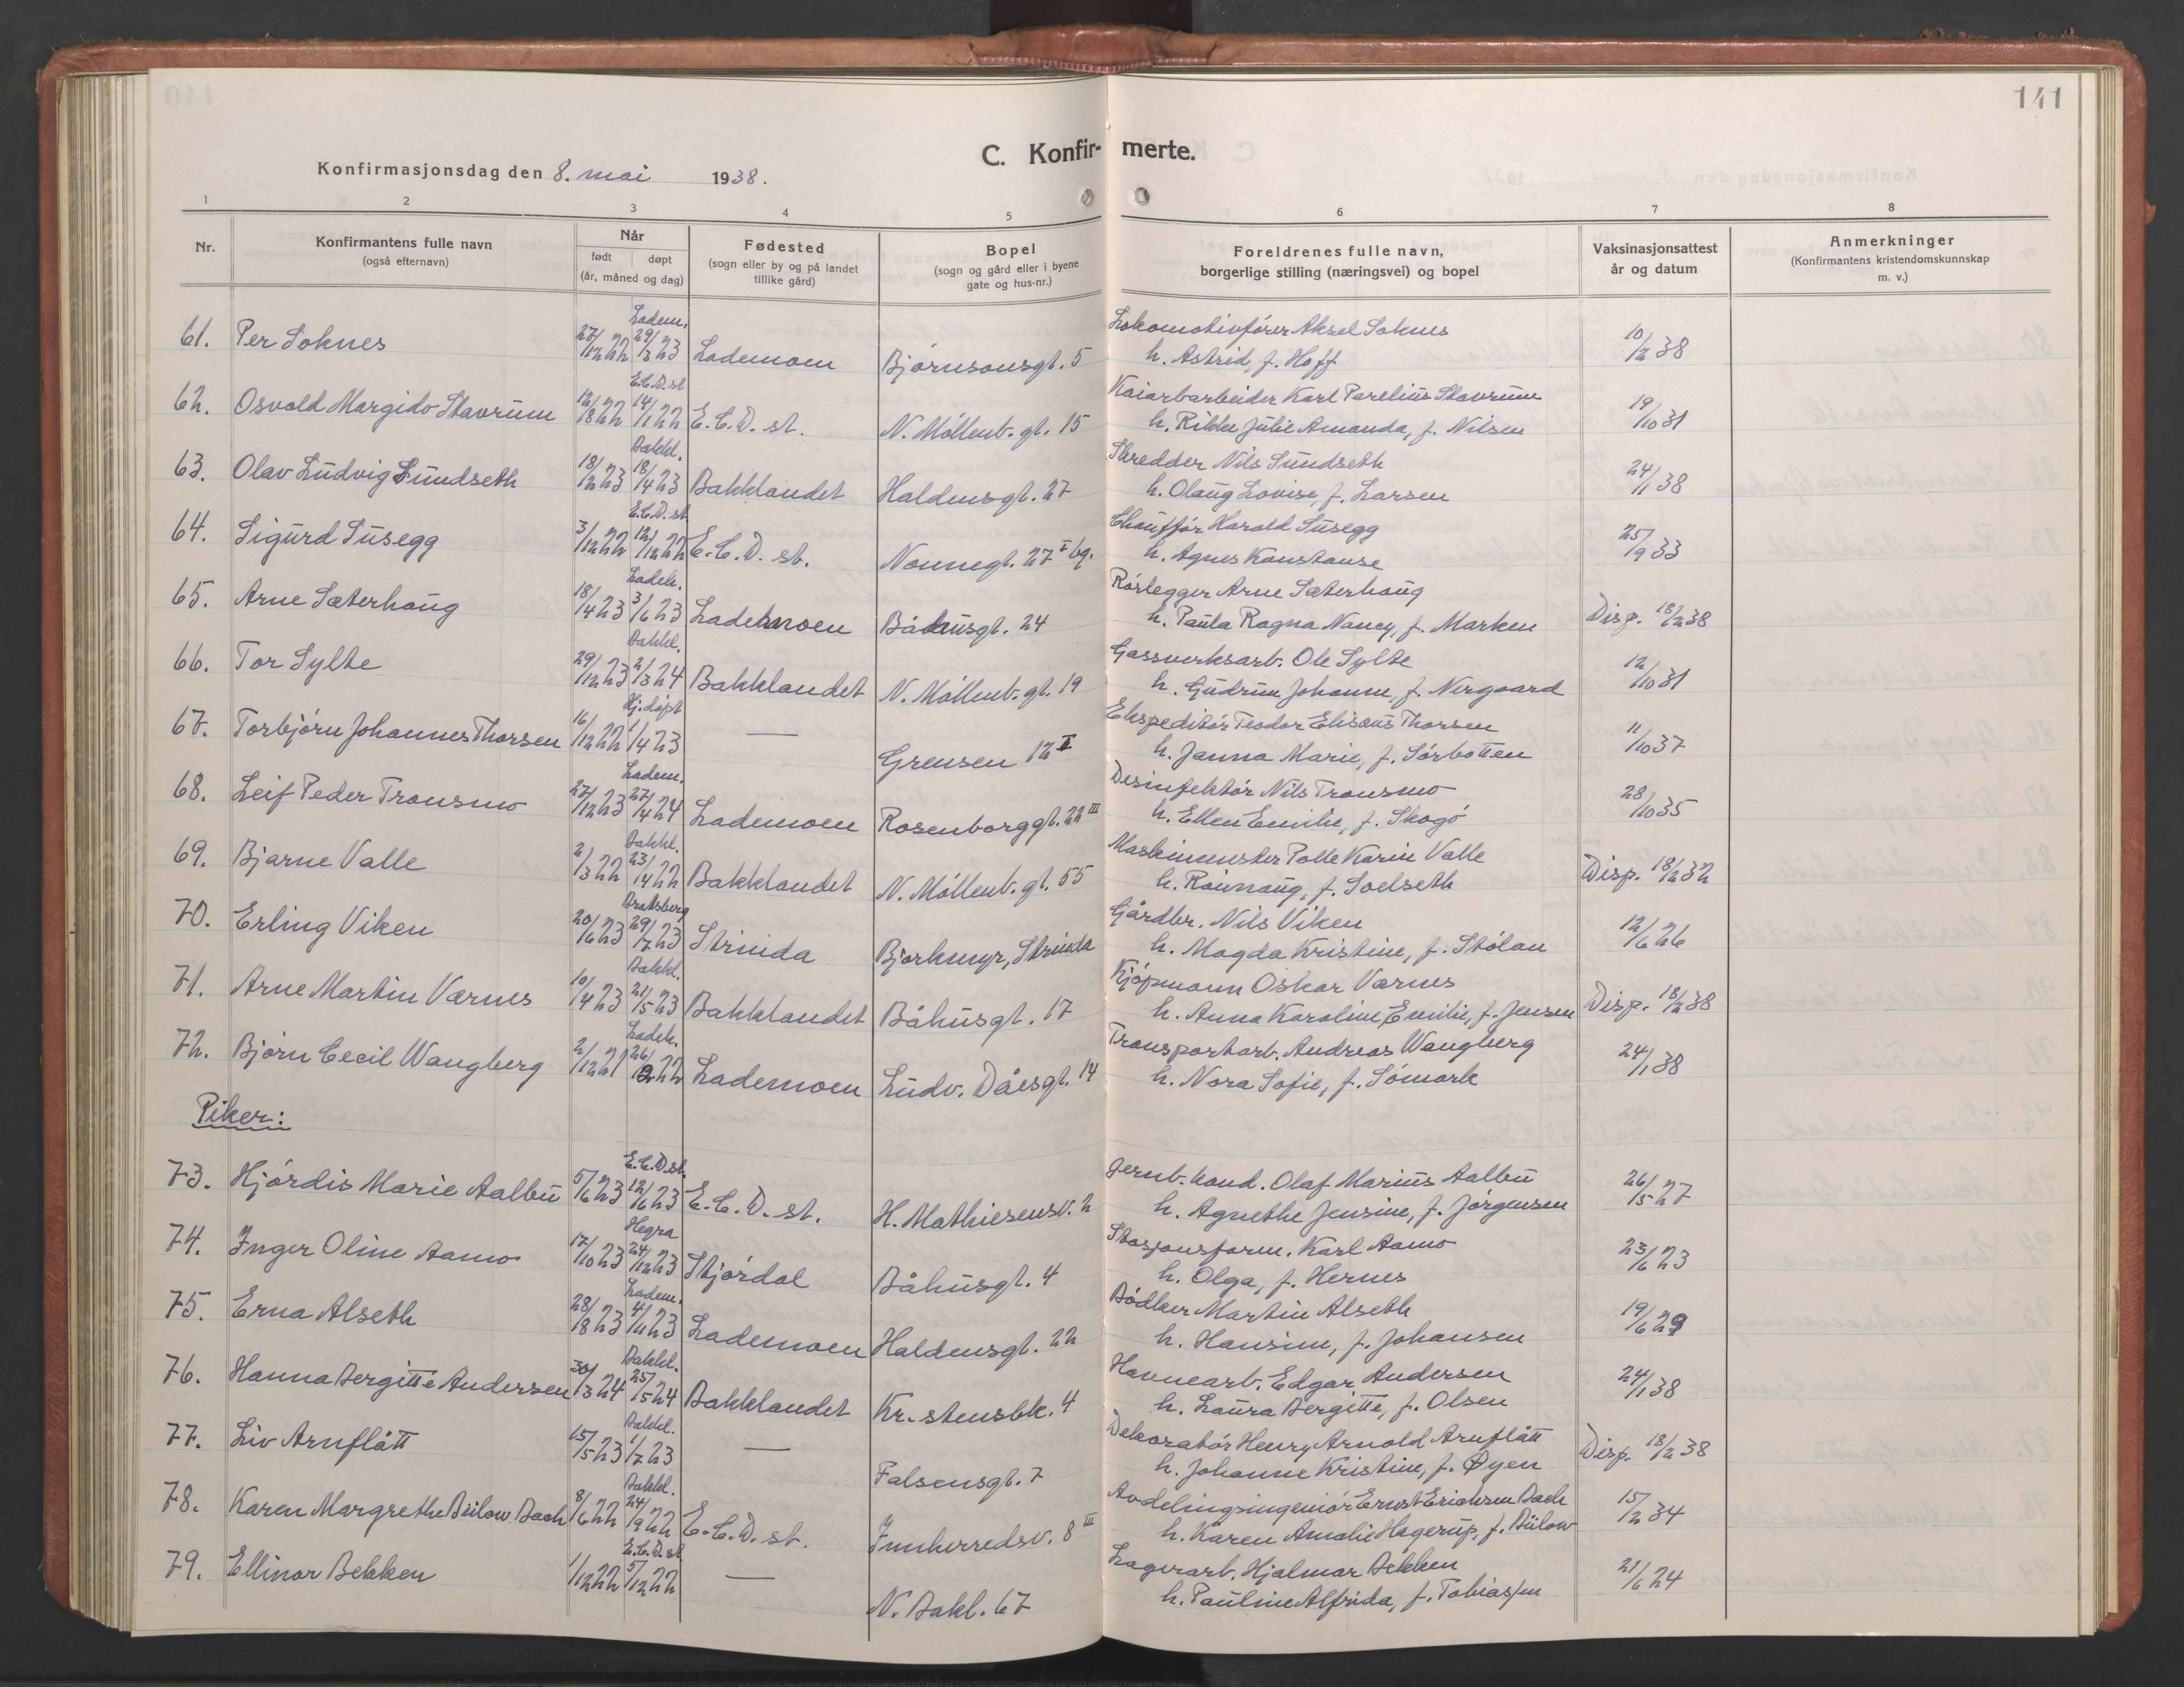 141
C. Konfir- merte.
Konfirmasjonsdag den 8. mai 1938.
1 2 3 4 5 6 7 8
Nr. Konfirmantens fulle navn (også efternavn) Når født døpt (år, måned og dag) Fødested (sogn eller by og på landet tillike gård) Bopel (sogn og gård eller i byene gate og hus-nr.) Foreldrenes fulle navn, borgerlige stilling (næringsvei) og bopel Vaksinasjonsattest år og datum Anmerkninger (Konfirmantens kristendomskunnskap m. v.)
Ladem.
61. Per Soknes 27/12 22 29/3 23 Lademoen Bjørnsonsgt. 5 Lokomotivfører Aksel Soknes 10/2 38
h. Astrid, f. Hoff
E.C.D. st.
62. Osvald Margido Stavrum 12/8 22 14/1 22 E.C.D. st. N. Møllenb. gt. 15 Kaiarbarbeider Karl Parelius Stavrum 19/10 31
h. Rikke Julie Amanda, f. Nilsen
Bakkl.
63. Olav Ludvig Sundseth 18/12 23 18/4 23 Bakklandet Haldensgt. 27 Skredder Nils Sundseth 24/1 38
h. Olaug Lovise, f. Larsen
E.C.D. st.
64. Sigurd Susegg 3/12 22 12/12 22 E.C.D. st. Nonnegt. 27 I bg. Chauffør Harald Susegg 25/9 33
h. Agnes Konstanse
Ladeh.
65. Arne Sæterhaug 18/4 23 3/6 23 Lademoen Båhusgt. 24 Rørlegger Arne Sæterhaug Disp. 18/2 38
h. Paula Ragna Nancy, f. Marken
Bakkl.
66. Tor Sylte 29/12 23 2/3 24 Bakklandet N. Møllenb. gt. 19 Gassverksarb. Ole Sylte 12/10 31
h. Gudrun Johanne, f. Nergaard
Hj. døpt
67. Torbjørn Johannes Thorsen 16/12 22 1/4 23 — Grensen 12 I Ekspeditør Teodor Elisæus Thorsen 11/10 37
h. Janna Marie, f. Sørbotten
Ladem.
68. Leif Peder Transmo 27/12 23 27/4 24 Lademoen Rosenborggt. 22 III Desinfektør Nils Transmo 28/10 35
h. Ellen Emilie, f. Skogø
Bakkl.
69. Bjarne Valle 2/3 22 23/4 22 Bakklandet N. Møllenb. gt. 55 Maskinmester Palle Karin Valle Disp. 18/2 32
h. Rønnaug, f. Soelseth
Bratsberg
70. Erling Viken 20/6 23 29/7 23 Strinda Bjørkmyr, Strinda Gårdbr. Nils Viken 12/6 26
h. Magda Kristine, f. Stølan
Bakkl.
71. Arne Martin Værnes 10/4 23 21/5 23 Bakklandet Båhusgt. 17 Kjøpmann Oskar Værnes Disp. 18/2 38
h. Anna Karoline Emilie, f. Jensen
Ladeh.
72. Bjørn Cecil Wangberg 2/12 21 26/12 22 Lademoen Ludv. Dåesgt. 14 Transportarb. Andreas Wangberg 24/1 38
h. Nora Sofie, f. Sømark
Piker:
E.C.D. st.
73. Hjørdis Marie Aalbu 5/6 23 12/6 23 E.C.D. st. H. Mathiesensv. 2 Jernb. kond. Olaf Marius Aalbu 26/5 27
h. Agnethe Jensine, f. Jørgensen
Hegra
74. Inger Oline Aamo 17/10 23 24/12 23 Stjørdal Båhusgt. 4 Stasjonsform. Karl Aamo 23/6 23
h. Olga, f. Hernes
Ladem.
75. Erna Alseth 28/8 23 4/11 23 Lademoen Haldensgt. 22 Bødker Martin Alseth 19/6 29
h. Hansine, f. Johansen
Bakkl.
76. Hanna Bergitte Andersen 30/3 24 25/5 24 Bakklandet Kr.-stensbk. 4 Havnearb. Edgar Andersen 24/1 38
h. Laura Bergitte, f. Olsen
Bakkl.
77. Liv Arnflått 15/5 23 1/7 23 — Falsensgt. 7 Dekoratør Henry Arnold Arnflått Disp. 18/2 38
h. Johanne Kristine, f. Øyen
Bakkl.
78. Karen Margrethe Bülow Bach 8/6 22 24/9 22 E.C.D. st. Innherredsv. 8 III Avdelingsingeniør Ernst Erichsen Bach 15/2 34
h. Karen Amalie Hagerup, f. Bülow
E.C.D. st.
79. Ellinor Bekken 1/12 22 5/12 22 — N. Bakl. 67 Lagerarb. Hjalmar Bekken 21/6 24
h. Pauline Alfrida, f. Tobiassen